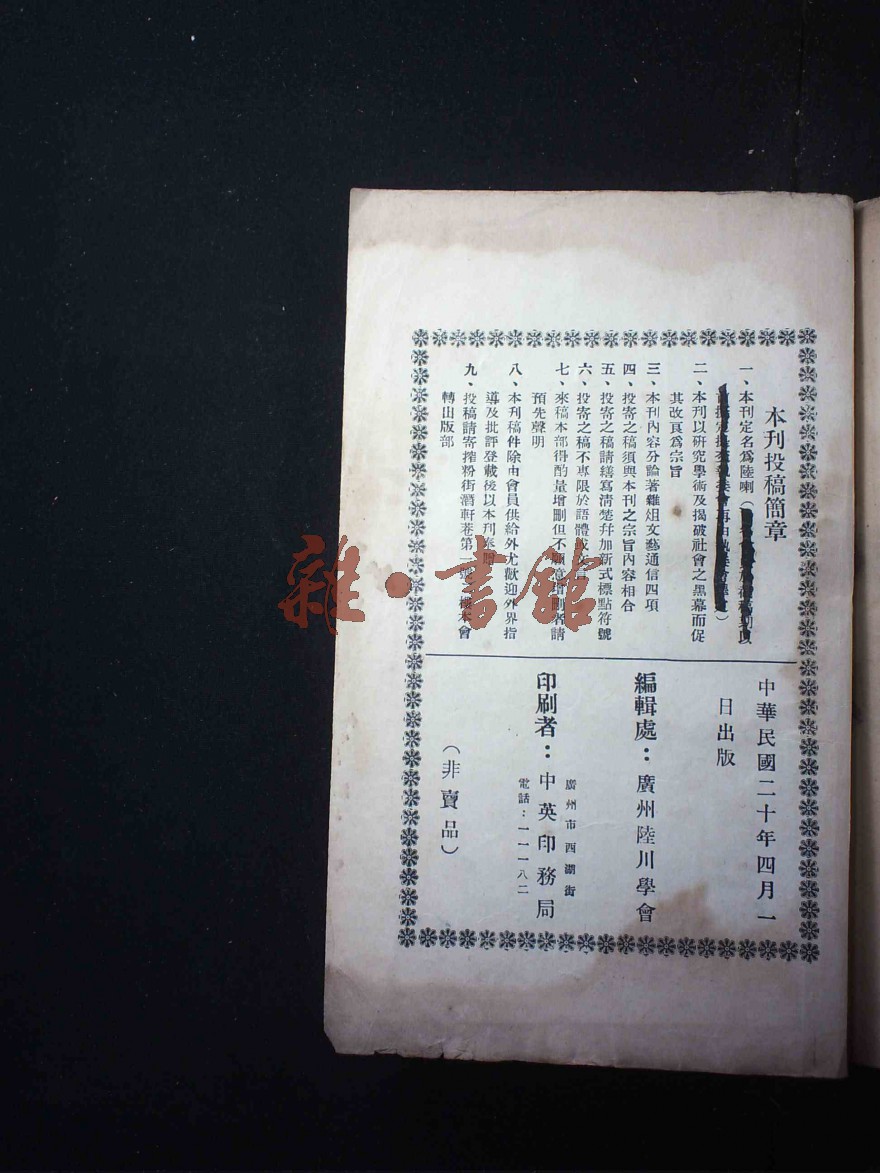 本刊投稿簡章
一、本刊定名為陸喇（
）
二、本刊以研究學術及揭破社會之黑幕而促
其改良為宗旨
三、本刊內容分論著雜俎文藝通信四項
四、投寄之稿須與本刊之宗旨內容相合
五、投寄之稿請繕寫清楚幷加新式標點符號
六、投寄之稿不專限於語體或文言
七、來稿本部得酌量增刪但不願意增刪者請
預先聲明
八、本刊稿件除由會員供給外尤歡迎外界指
導及批評登載後以本刊奉贈
九、投稿請寄搾粉街濳軒巷第一號 樓本會
轉出版部
中華民國二十年四月一
日出版
編輯處：廣州陸川學會
廣州市西湖街
印刷者：中英印務局
電話：一一一八二
（非賣品）
雜·書館